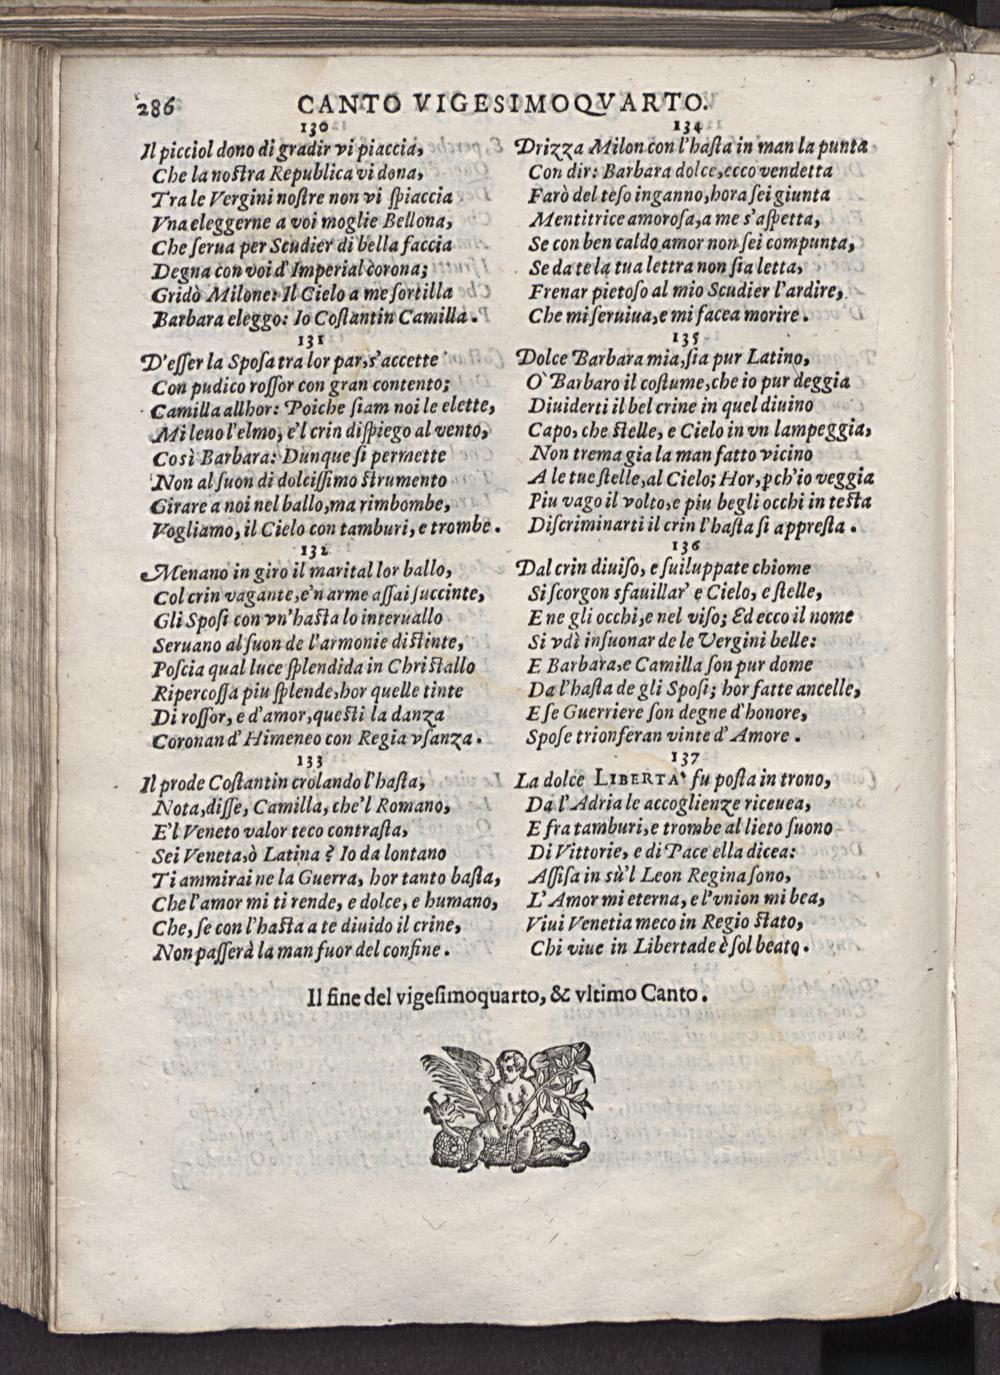 286
CANTO VIGESIMOQVARTO.
130
Il picciol dono di gradir vi piaccia,
Che la noſtra Republica vi dona,
Tra le Vergini noſtre non vi ſpiaccia
Vna eleggerne a voi moglie Bellona,
Che ſerua per Scudier di bella faccia
Degna con voi d'Imperial corona;
Gridò Milone: Il Cielo a me ſortilla
Barbara eleggo: Io Coſtantin Camilla.
131
D'eſſer la Spoſa tra lor par, s'accette
Con pudico roſſor con gran contento;
Camilla allhor: Poiche ſiam noi le elette,
Mi leuo l'elmo, e'l crin diſpiego al vento,
Così Barbara: Dunque ſi permette
Non al ſuon di dolciſſimo ſtrumento
Girare a noi nel ballo, ma rimbombe,
Vogliamo, il Cielo con tamburi, e trombe.
132
Menano in giro il marital lor ballo,
Col crin vagante, e'n arme aſſai ſuccinte,
Gli Spoſi con vn'haſta lo interuallo
Seruano al ſuon de l'armonie diſtinte,
Poſcia qual luce ſplendida in Chriſtallo
Ripercoſſa piu ſplende, hor quelle tinte
Di roſſor, e d'amor, queſti la danza
Coronan d'Himeneo con Regia vſanza.
133
Il prode Coſtantin crolando l'haſta,
Nota, diſſe, Camilla, che'l Romano,
E'l Veneto valor teco contraſta,
Sei Veneta, ò Latina? Io da lontano
Ti ammirai ne la Guerra, hor tanto baſta,
Che l'amor mi ti rende, e dolce, e humano,
Che, ſe con l'haſta a te diuido il crine,
Non paſſerà la man fuor del confine.
134
Drizza Milon con l'haſta in man la punta
Con dir: Barbara dolce, ecco vendetta
Farò del teſo inganno, hora ſei giunta
Mentitrice amoroſa, a me s'aſpetta,
Se con ben caldo amor non ſei compunta,
Se da te la tua lettra non ſia letta,
Frenar pietoſo al mio Scudier l'ardire,
Che mi ſeruiua, e mi facea morire.
135
Dolce Barbara mia, ſia pur Latino,
O' Barbaro il coſtume, che io pur deggia
Diuiderti il bel crine in quel diuino
Capo, che ſtelle, e Cielo in vn lampeggia,
Non trema gia la man fatto vicino
A le tue ſtelle, al Cielo; Hor, pch'io veggia
Piu vago il volto, e piu begli occhi in teſta
Diſcriminarti il crin l'haſta ſi appreſta.
136
Dal crin diuiſo, e ſuiluppate chiome
Si ſcorgon sfauillar e Cielo, e ſtelle,
E ne gli occhi, e nel viſo; Ed ecco il nome
Si vdì inſuonar de le Vergini belle:
E Barbara, e Camilla ſon pur dome
Da l'haſta de gli Spoſi; hor fatte ancelle,
E ſe Guerriere ſon degne d'honore,
Spoſe trionferan vinte d'Amore.
137
La dolce LIBERTA' fu poſta in trono,
Da l'Adria le accoglienze riceuea,
E fra tamburi, e trombe al lieto ſuono
Di Vittorie, e di Pace ella dicea:
Aſſiſa in sù'l Leon Regina ſono,
L'Amor mi eterna, e l'vnion mi bea,
Viui Venetia meco in Regio ſtato,
Chi viue in Libertade è ſol beato.
Il fine del vigeſimoquarto, & vltimo Canto.